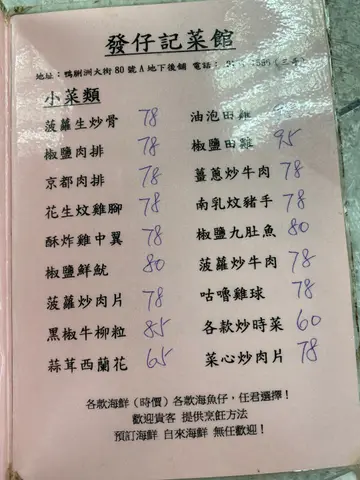 發仔記菜館
地址：鴨脷洲大街80號A地下後舖 電話：
小菜類
菠蘿生炒骨 78
椒鹽肉排 78
京都肉排 78
花生炆雞腳 78
酥炸雞中翼 78
椒鹽鮮魷 80
菠蘿炒肉片 78
黑椒牛柳粒 85
蒜茸西蘭花 65
油泡田雞
椒鹽田雞 95
薑蔥炒牛肉 78
南乳炆豬手 78
椒鹽九肚魚 80
菠蘿炒牛肉 78
咕嚕雞球 78
各款炒時菜 60
菜心炒肉片 78
各款海鮮（時價）各款海魚仔，任君選擇！
歡迎貴客 提供烹飪方法
預訂海鮮 自來海鮮 無任歡迎！